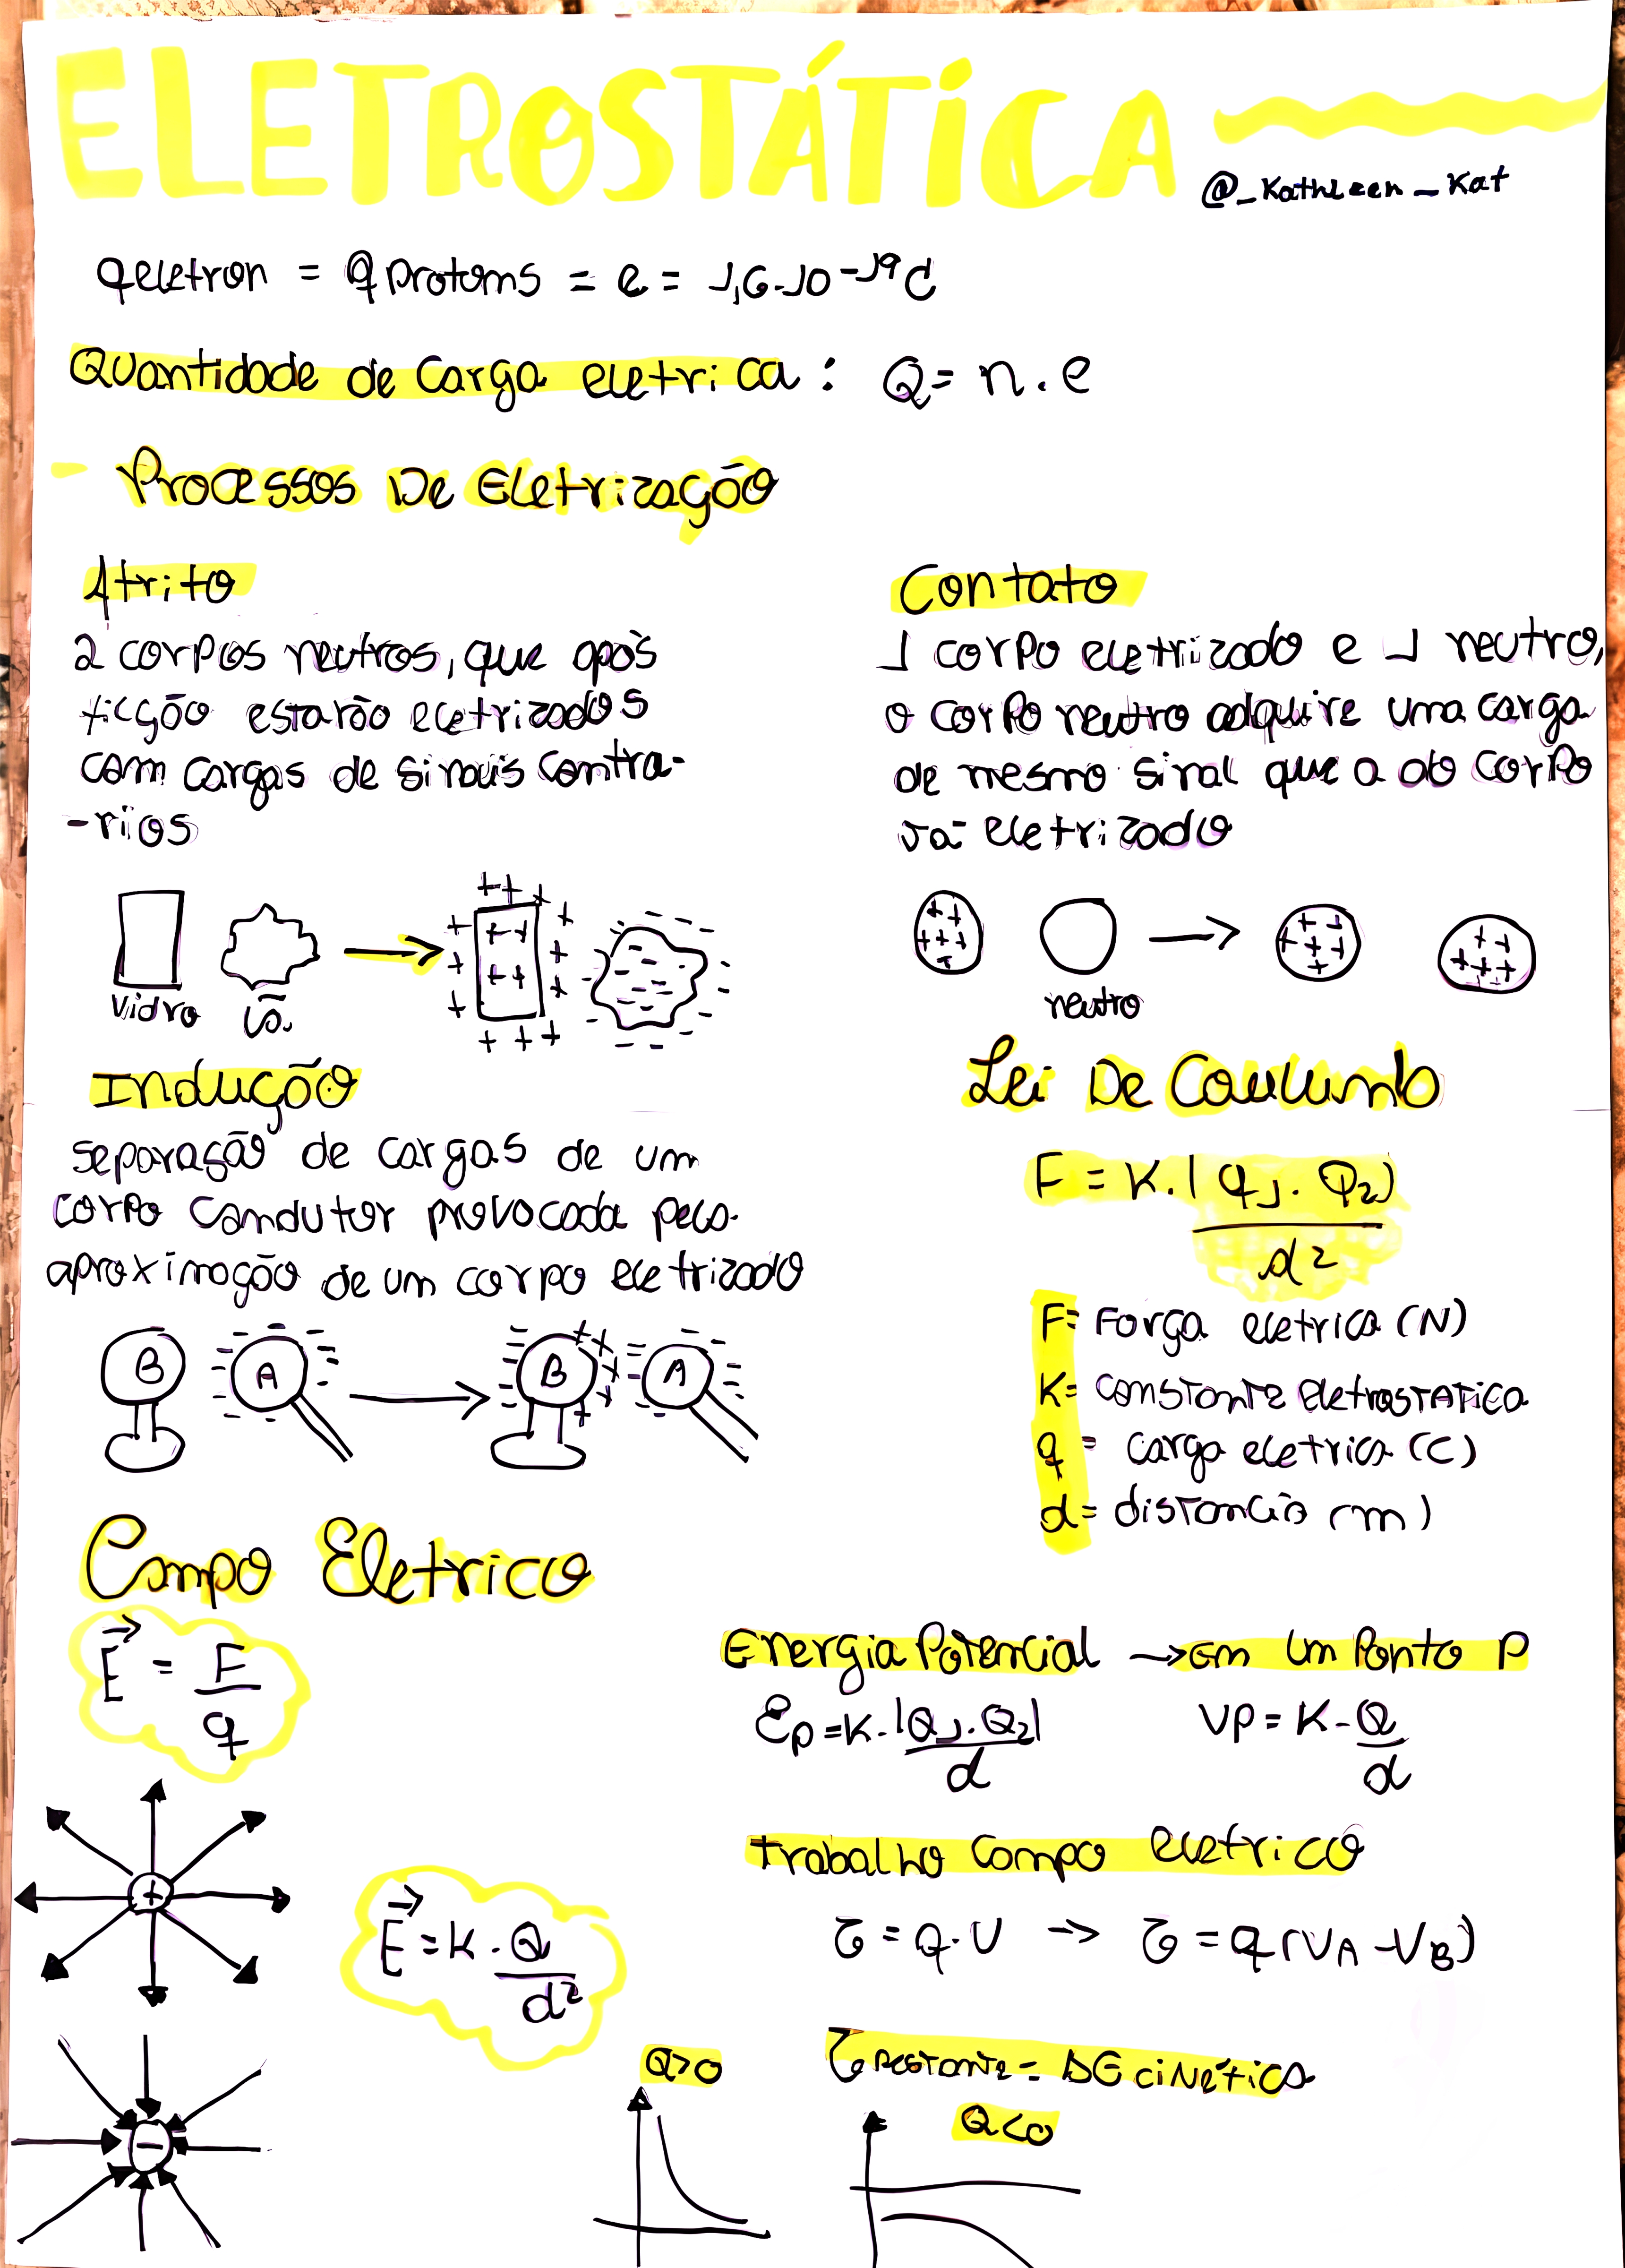 ELETROSTÁTICA
@_Kathleen_Kat
qeletron = q Protons = e = 1,6.10⁻¹⁹C
Quantidade de Carga eletrica : Q = n.e
- Processos De Eletrização
Atrito
2 corpos neutros, que após
ficção estarão eletrizados
com cargas de sinais contra-
-rios
Vidro lã
Contato
1 corpo eletrizado e 1 neutro,
o corpo neutro adquire uma carga
de mesmo sinal que a do corpo
Já eletrizado
+ + + + + + neutro + + + + + + + + + + +
Indução
separação de cargas de um
corpo condutor provocada pela
aproximação de um corpo eletrizado
B A B A
Lei De Coulumb
F = K.|q1.Q2)
d²
F= Força eletrica (N)
K= constante eletrostatica
q = carga eletrica (C)
d= distancia (m)
Campo Eletrico
E = F
q
+
E = K . Q
d²
-
Energia Potencial → em um Ponto P
Ep = K . |Q1.Q2|
d
VP = K - Q
d
trabalho campo eletrico
τ = q.U → τ = q(VA - VB)
τ Restante = ΔE cinética
Q>0
Q<0